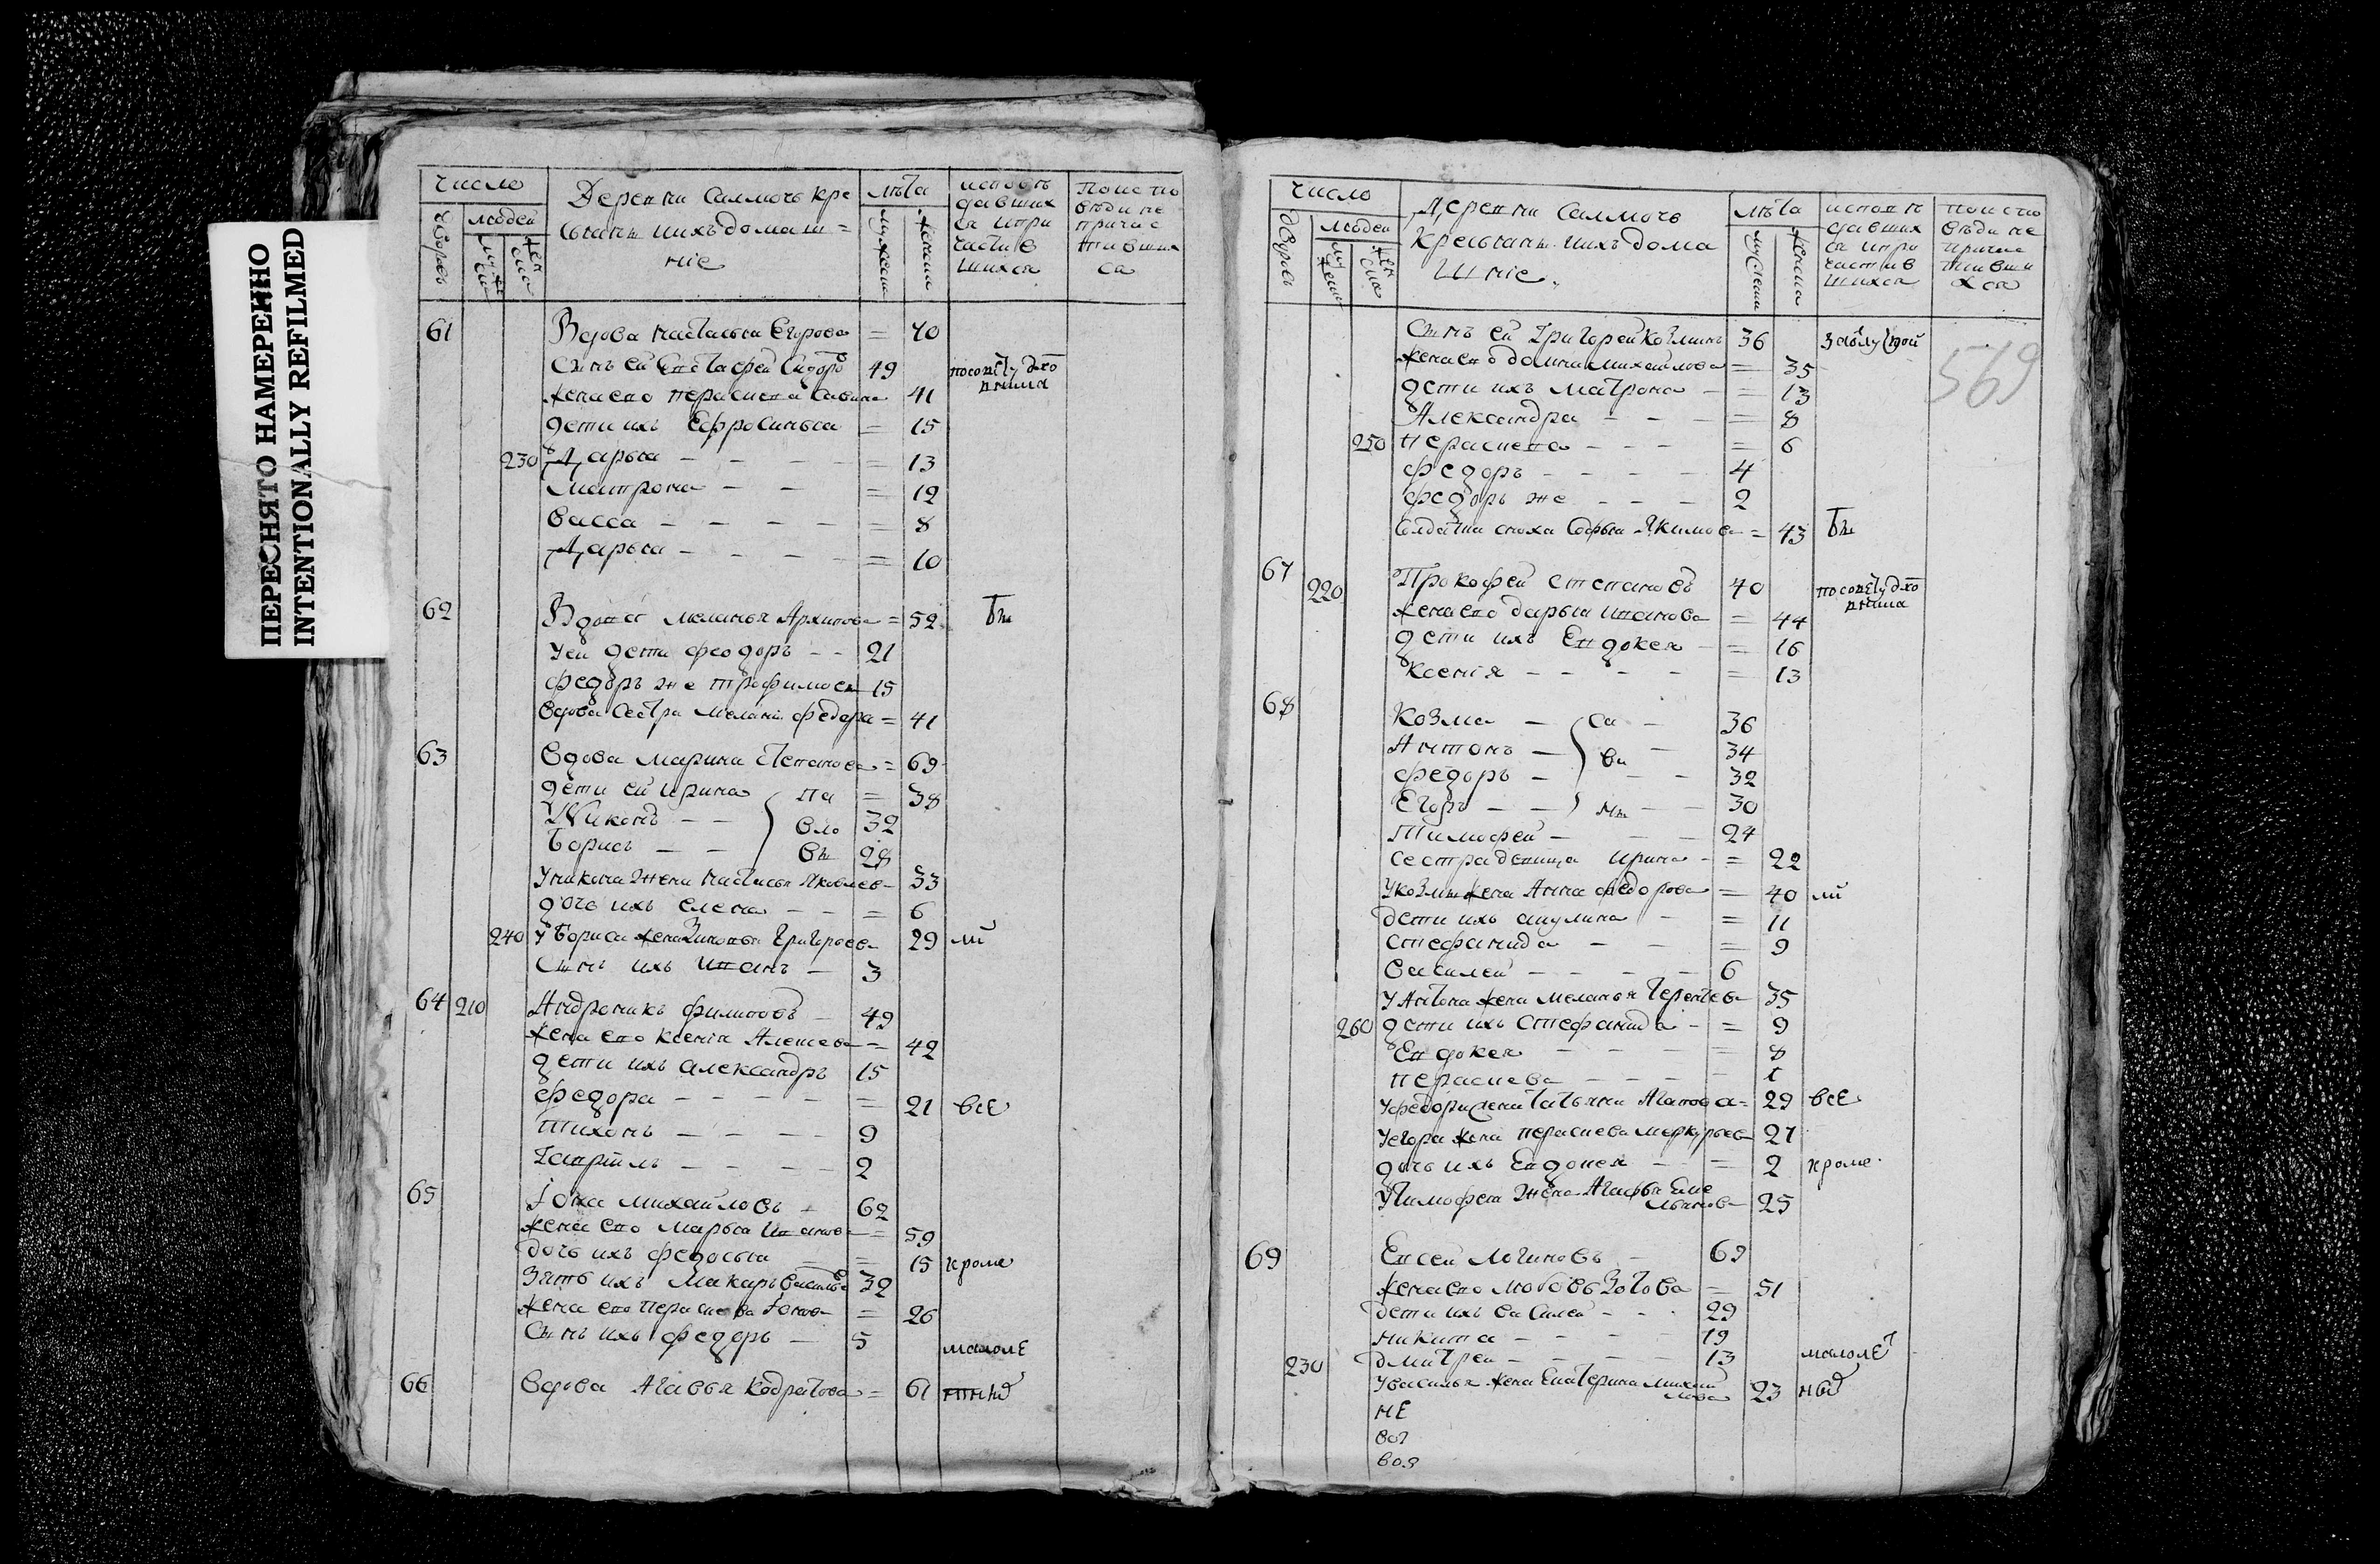 ПЕРЕСНЯТО НАМЕРЕННО
INTENTIONALLY REFILMED
Число
Дворовъ
людей
муже
жен
ска
Деревни Салмочь кре
стьянъ и ихъ домаш=
ніе
лѣта
мужеска
женска
исповѣ
давших
ся и при
частив
шихся
по испо
вѣди не
причас
тивших
ся
61 Вдова настасья Егорова = 70
сынъ ей Евстафей Сидоро 49
жена его параскева Савина 41
дети ихъ Ефросинья = 15
230 Дарья = 13
матрона = 12
васса = 8
Дарья = 10
по сошѣству духо
внима
62 Вдова меланья Архипова = 52 бы
у ей дети феодоръ 21
федоръ же трофимовы 15
вдова сестра мелани федора = 41
63 вдова марина Степанова = 69
дети ей ирина = 38
Никонъ 32
борисъ 28
па
вло
вы
у никона жена настасья Яковлев 33
дочь ихъ елена = 6
240 у бориса жена Зиновья григорьев 29 ли
сынъ ихъ иванъ 3
64 210 Андроникъ филиповъ 49
жена его ксенія Алексева = 42
дети ихъ александръ 15
федора = 21 все
тихонъ 9
гавріилъ 2
65 Іона михайловъ 62
жена его марья ивановa = 59
дочь ихъ федосья = 15 кроме
зять ихъ макаръ василье 32
жена его параскева Іонов = 26
сынъ ихъ федоръ 5
малоле
66 вдова Агавья кодратова = 61 тнид
Число
Дворовъ
людей
муже
жен
ска
Деревни Салмочь
крестьянъ и ихъ дома
шніе.
лѣта
мужеска
женска
исповѣ
давших
ся и при
частив
шихся
по испо
вѣди не
причас
тивши
хся
569
сынъ ей Григорей козминъ 36
жена его домна михайлова = 35
дети ихъ матрона = 13
Александра = 8
250 параскева = 6
федоръ 4
федоръ же 2
солдатка сноха софья Якимова = 43 бы
67 220 Прокофей степановъ 40
жена его дарья иванова = 44
дети ихъ Евдокея = 16
ксенія = 13
по сошѣству духо
внима
68 козма 36
Антонъ 34
федоръ 32
Егоръ 30
Тимофей 24
са
ви
ны
сестра девица ирина = 22
у козмы жена Анна федорова = 40 ли
дети ихъ акулина = 11
стефанида = 9
василей 6
у Антона жена меланья терентьева 35
260 дети ихъ стефанида = 9
Евдокея = 8
параскева 1
у федора жена татьяна Агапова = 29 все
у егора жена параскева меркурьева 27
дочь ихъ Евдокея = 2 кроме
у тимофея жена Агафья Еме
льянова 25
69 Евсей Логиновъ 69
жена его любовь Зотова = 51
дети ихъ василей 29
никита 19
230 дмитрей 13
малолет
у василья жена Екатерина михай
лова 23 ныд
не
во2
воя